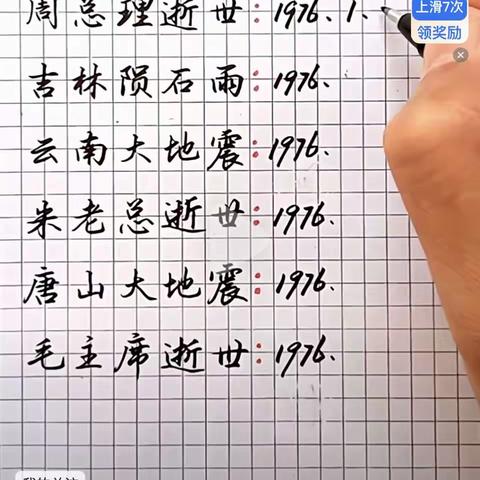 周总理逝世:1976.1.
上滑7次
领奖励
吉林陨石雨:1976.
云南大地震:1976.
朱老总逝世:1976.
唐山大地震:1976.
毛主席逝世:1976.